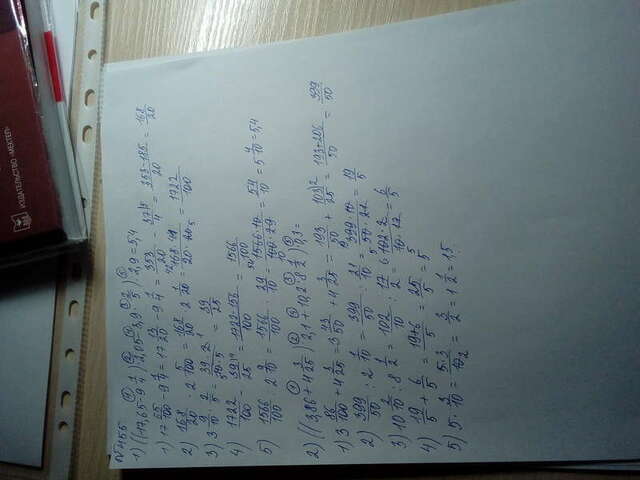 ИЗДАТЕЛЬСТВО «МЕКТЕП»
№455
1) ((17,65-9 1/4) · 2,05-3,9 · 2/5) : 2,9 = 5,4
1) 17 65/100 - 9 1/4 = 17 13/20 - 9 1/4 = 353/20 - 37/4 = 353-185/20 = 168/20
2) 168/20 · 2 5/100 = 168/20 · 2 1/20 = 168·41/20·20 = 1722/100
3) 3 9/10 · 2/5 = 39·2/10·5 = 39/25
4) 1722/100 - 39/25 = 1722-156/100 = 1566/100
5) 1566/100 : 2 9/10 = 1566/100 : 29/10 = 1566·10/100·29 = 54/10 = 5 4/10 = 5,4
2) ((3,86+4 3/25) : 2,1 + 10,2 : 8 1/2) · 0,3=
1) 3 86/100 + 4 3/25 = 3 43/50 + 4 3/25 = 193/50 + 103/25 = 193+206/50 = 399/50
2) 399/50 : 2 1/10 = 399/50 : 21/10 = 399·10/50·21 = 19/5
3) 10 2/10 : 8 1/2 = 102/10 : 17/2 = 102·2/10·17 = 6/5
4) 19/5 + 6/5 = 19+6/5 = 25/5 = 5
5) 5 · 3/10 = 5·3/10 = 3/2 = 1 1/2 = 1,5